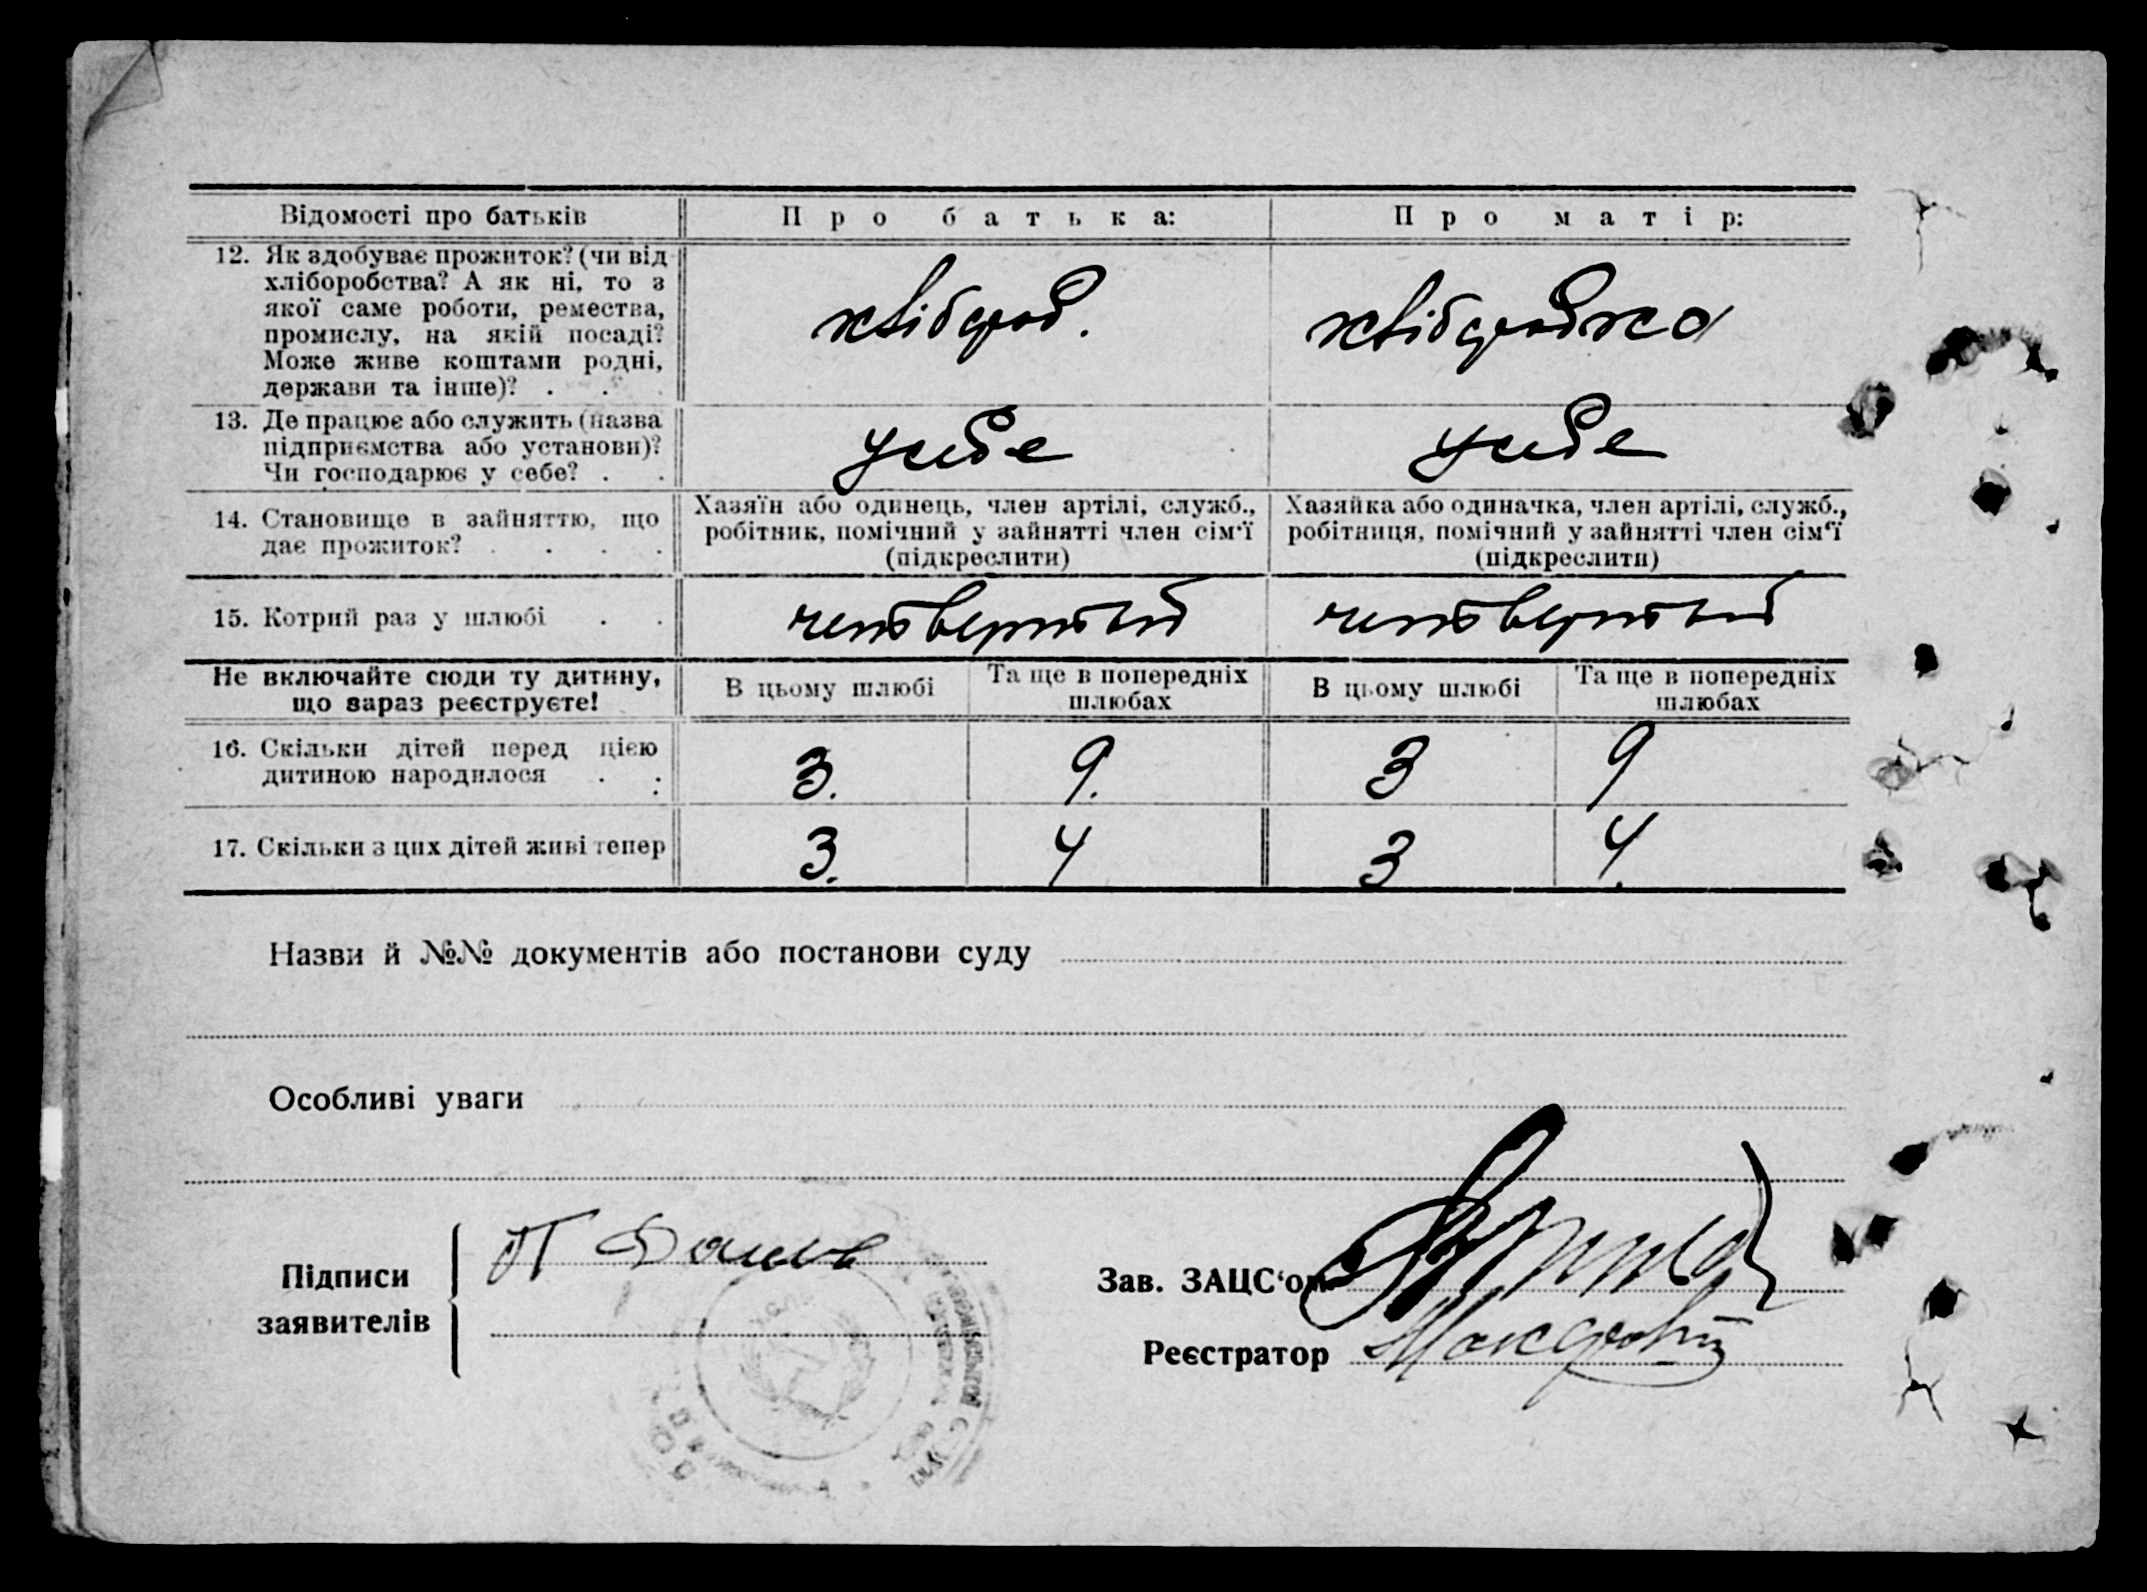 Відомості про батьків
Про батька:
Про матір:
12. Як здобуває прожиток? (чи від
хліборобства? А як ні, то з
якої саме роботи, ремества,
промислу, на якій посаді?
Може живе коштами родні,
держави та інше)? . .
хлібороб.
хліборобка
13. Де працює або служить (назва
підприємства або установи)?
Чи господарює у себе? . .
у себе
у себе
14. Становище в зайняттю, що
дає прожиток? . . . .
Хазяїн або одинець, член артілі, служб.,
робітник, помічний у зайнятті член сім'ї
(підкреслити)
Хазяйка або одиначка, член артілі, служб.,
робітниця, помічний у зайнятті член сім'ї
(підкреслити)
15. Котрий раз у шлюбі . .
четвертий
четвертий
Не включайте сюди ту дитину,
що зараз реєструєте!
В цьому шлюбі
Та ще в попередніх
шлюбах
В цьому шлюбі
Та ще в попередніх
шлюбах
16. Скільки дітей перед цією
дитиною народилося . .
3.
9.
3
9
17. Скільки з цих дітей живі тепер
3.
4
3
4.
Назви й №№ документів або постанови суду
Особливі уваги
Підписи
заявителів
П
Зав. ЗАЦС'ом
Реєстратор